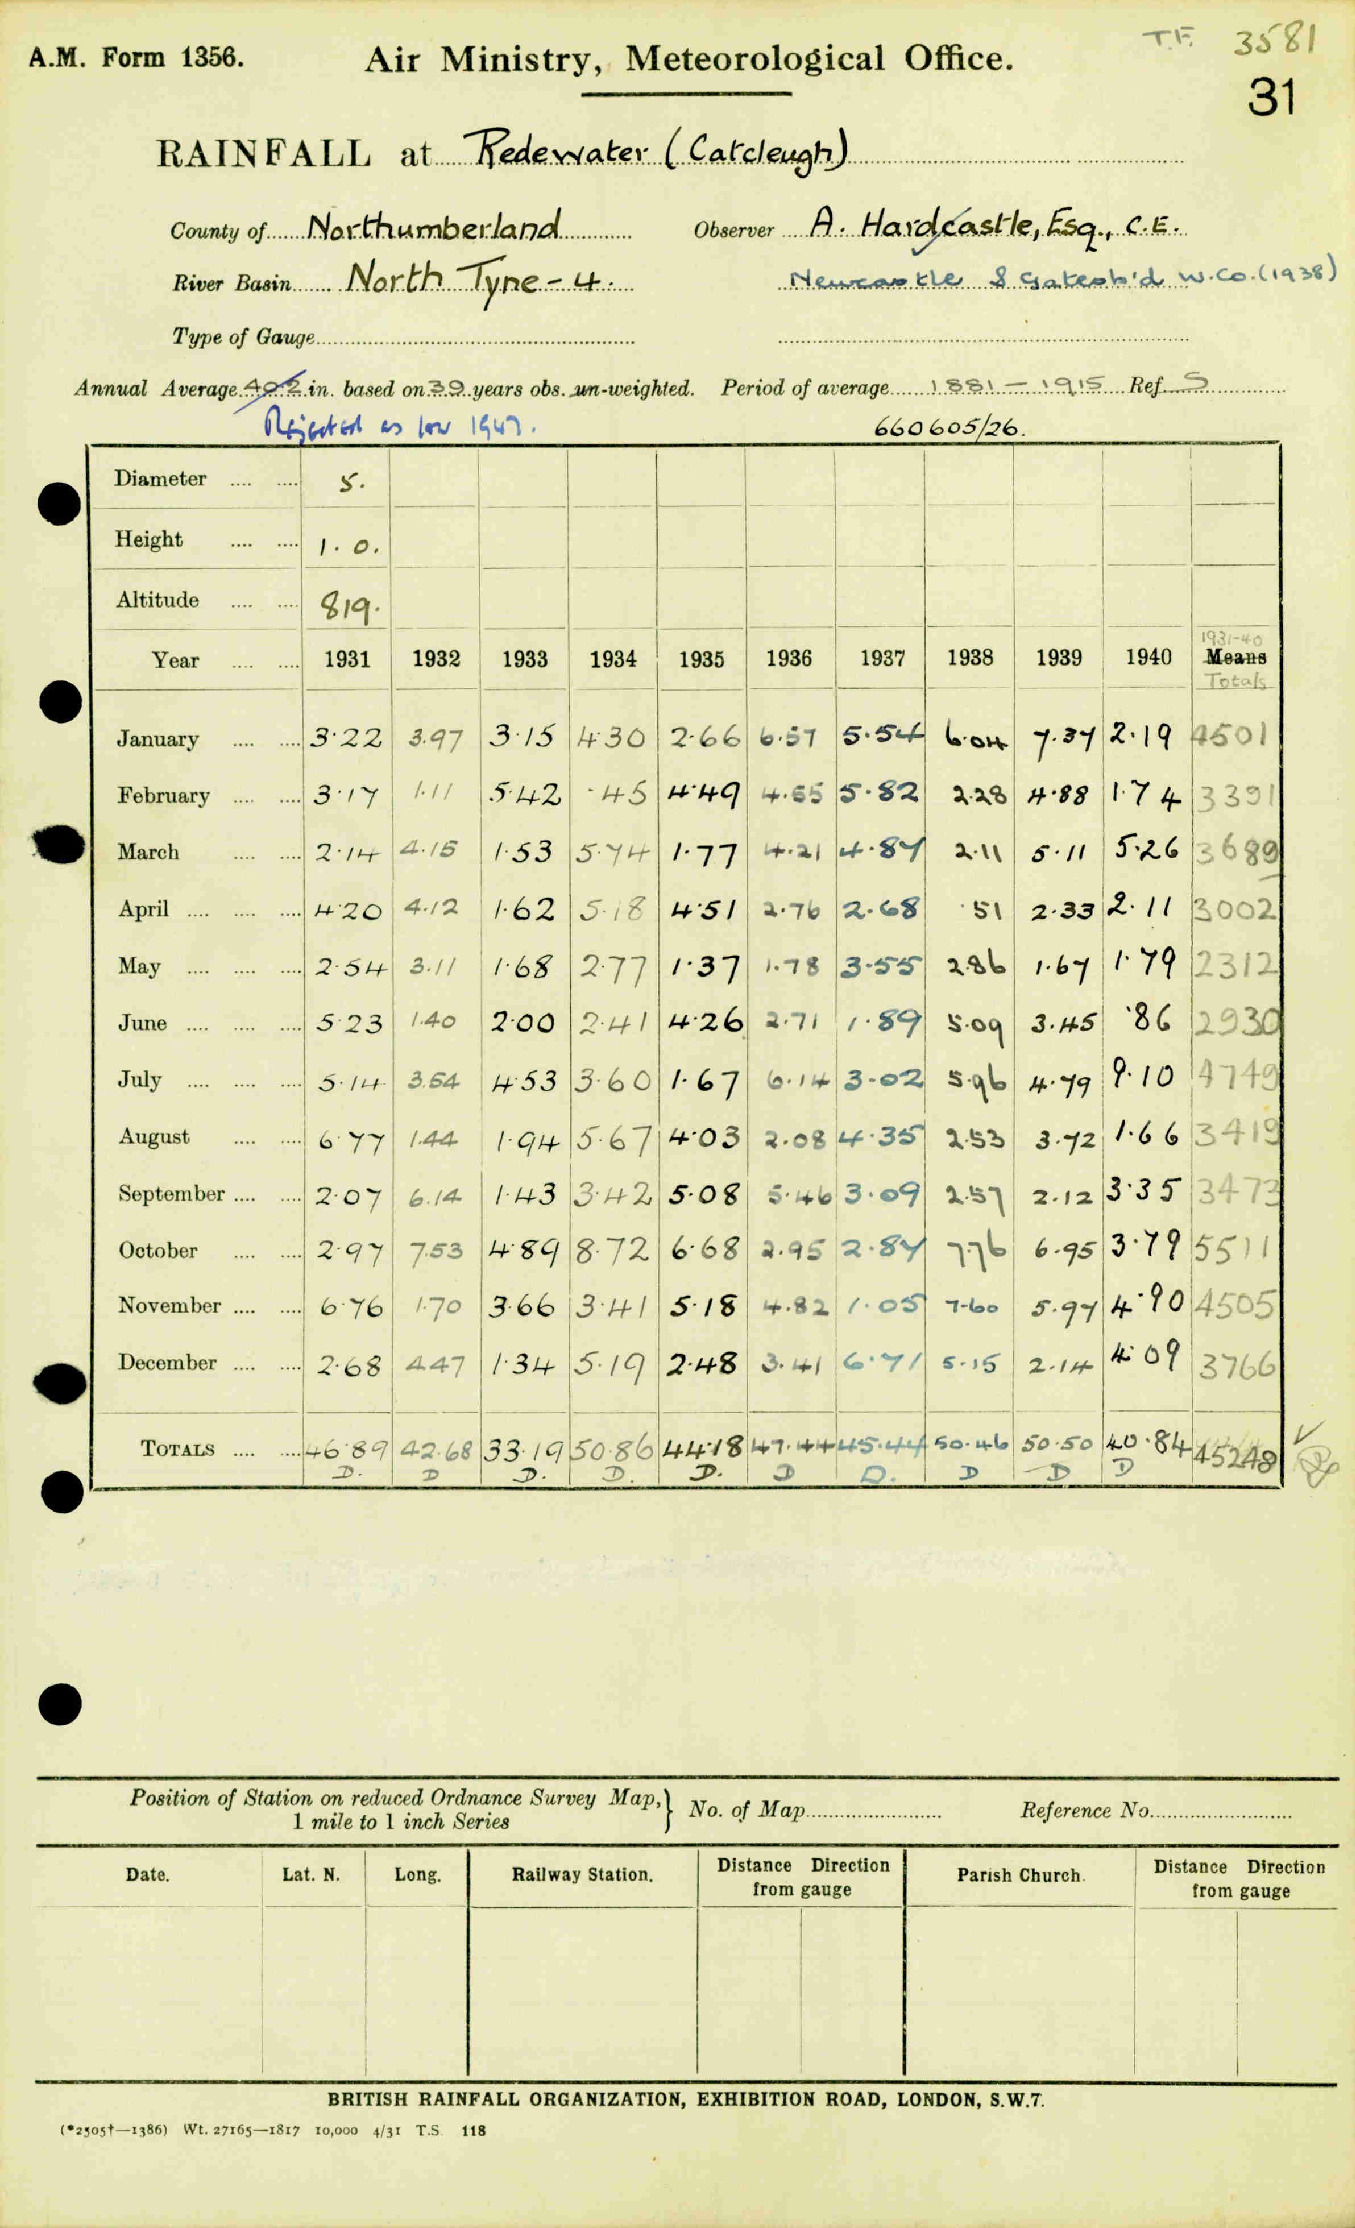 T.F. 3581
A.M. Form 1356. Air Ministry, Meteorological Office.
31
RAINFALL at Redewater (Catcleugh)
County of Northumberland Observer A. Hardcastle, Esq., C.E.
River Basin North Tyne - 4. Newcastle & Gatesh'd W.Co. (1938)
Type of Gauge
Annual Average 40.2 in. based on 39 years obs. un-weighted. Period of average 1881 - 1915 Ref. S
Rejected as low 1947. 660605/26.
Diameter 5.
Height 1. 0.
Altitude 819.
1931-40
Year 1931 1932 1933 1934 1935 1936 1937 1938 1939 1940 Means
Totals
January 3.22 3.97 3.15 4.30 2.66 6.57 5.54 6.04 7.37 2.19 4501
February 3.17 1.11 5.42 .45 4.49 4.55 5.82 2.28 4.88 1.74 3391
March 2.14 4.15 1.53 5.74 1.77 4.21 4.87 2.11 5.11 5.26 3689
April 4.20 4.12 1.62 5.18 4.51 2.76 2.68 .51 2.33 2.11 3002
May 2.54 3.11 1.68 2.77 1.37 1.78 3.55 2.86 1.67 1.79 2312
June 5.23 1.40 2.00 2.41 4.26 2.71 1.89 5.09 3.45 .86 2930
July 5.14 3.54 4.53 3.60 1.67 6.14 3.02 5.96 4.79 9.10 4749
August 6.77 1.44 1.94 5.67 4.03 2.08 4.35 2.53 3.72 1.66 3419
September 2.07 6.14 1.43 3.42 5.08 5.46 3.09 2.57 2.12 3.35 3473
October 2.97 7.53 4.89 8.72 6.68 2.95 2.87 7.76 6.95 3.79 5511
November 6.76 1.70 3.66 3.41 5.18 4.82 1.05 7.60 5.97 4.90 4505
December 2.68 4.47 1.34 5.19 2.48 3.41 6.71 5.15 2.14 4.09 3766
TOTALS 46.89 42.68 33.19 50.86 44.18 47.44 45.44 50.46 50.50 40.84 45248
D. D D. D. D. D D. D D D
Position of Station on reduced Ordnance Survey Map,} No. of Map Reference No.
1 mile to 1 inch Series
Date. Lat. N. Long. Railway Station. Distance Direction from gauge Parish Church. Distance Direction from gauge
BRITISH RAINFALL ORGANIZATION, EXHIBITION ROAD, LONDON, S.W.7.
(*2505†—1386) Wt. 27165—1817 10,000 4/31 T.S. 118